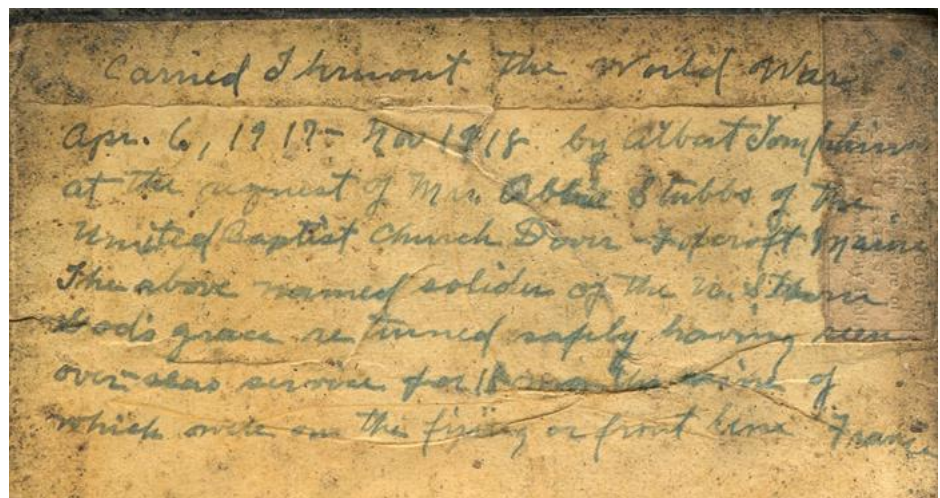 Carried Thruout the World War
Apr. 6, 1917 - Nov 1918 by Albert Tompkins
at the request of Mrs. Abbie Stubbs of the
United Baptist Church Dover - Foxcroft Maine
The above named solider of the U.S. thru
God's grace returned safely having seen
over-seas service for 18 mo nine of
which were on the firing or front line France